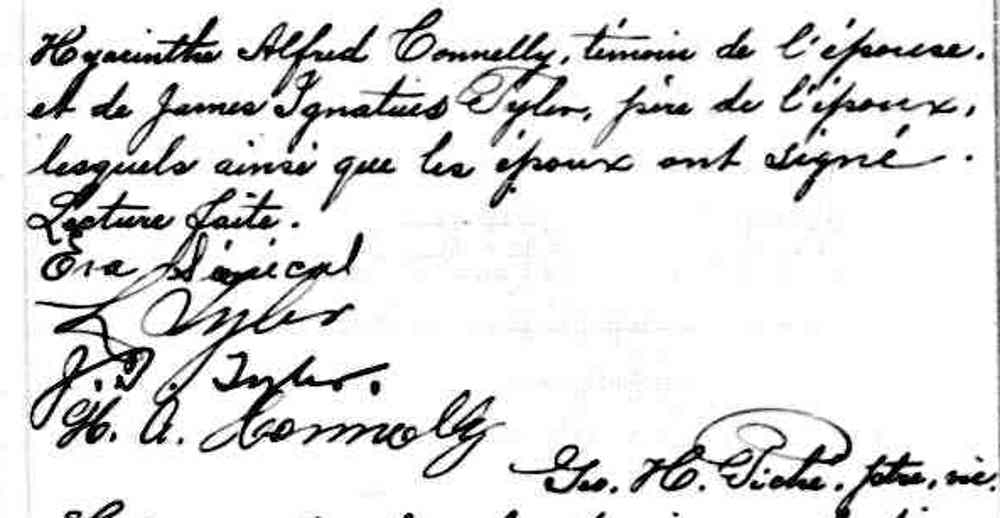 Hyacinthe Alfred Connelly, témoin de l'épouse.
et de James Ignatius Tyler, père de l'époux,
lesquels ainsi que les époux ont signé.
Lecture faite.
Eva Sénécal
L Tyler
J. I. Tyler.
H. A. Connolly
Geo. H. Piché, ptre, vic.